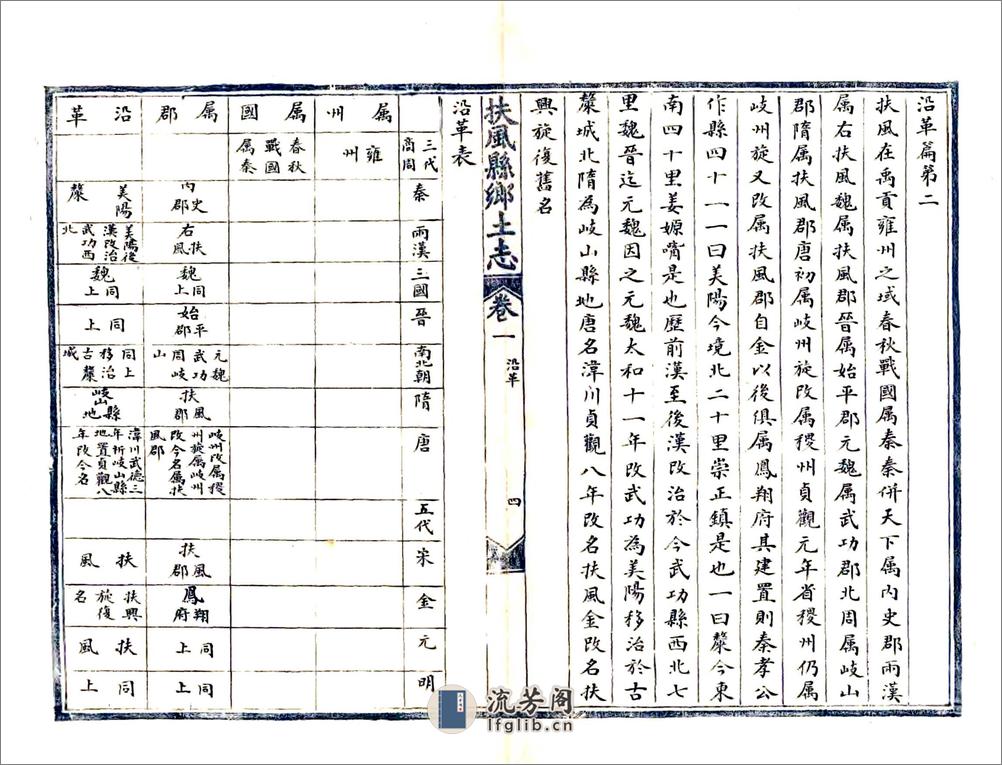 沿革篇第二
扶風在禹貢雍州之域春秋戰國属秦秦併天下属內史郡兩漢
属右扶風魏属扶風郡晉属始平郡元魏属武功郡北周属岐山
郡隋属扶風郡唐初属岐州旋改属稷州貞觀元年省稷州仍属
岐州旋又改属扶風郡自金以後俱属鳳翔府其建置則秦孝公
作縣四十一一曰美陽今境北二十里崇正鎮是也一曰斄今東
南四十里姜嫄嘴是也歷前漢至後漢改治於今武功縣西北七
里魏晉迄元魏因之元魏太和十一年改武功為美陽移治於古
斄城北隋為岐山縣地唐名湋川貞觀八年改名扶風金改名扶
興旋復舊名
扶風縣鄉土志
卷一
沿革
四
沿革表
属州
属國
属郡
沿革
三代商周
雍州
春秋戰國属秦
秦
內史郡
美陽
斄
兩漢
右扶風
美陽後漢改治武功西北
三國
魏同上
魏同上
晉
始平郡
同上
南北朝
元魏武功周岐山
同上移治古斄城
隋
扶風郡
岐山縣地
唐
岐州改属稷州旋属岐州改今名属扶風郡
湋川武德三年析岐山縣地置貞觀八年改今名
五代
宋
扶風郡
扶風
金
鳳翔府
扶興旋復名
元
同上
扶風
明
同上
同上
流芳阁
lfglib.cn